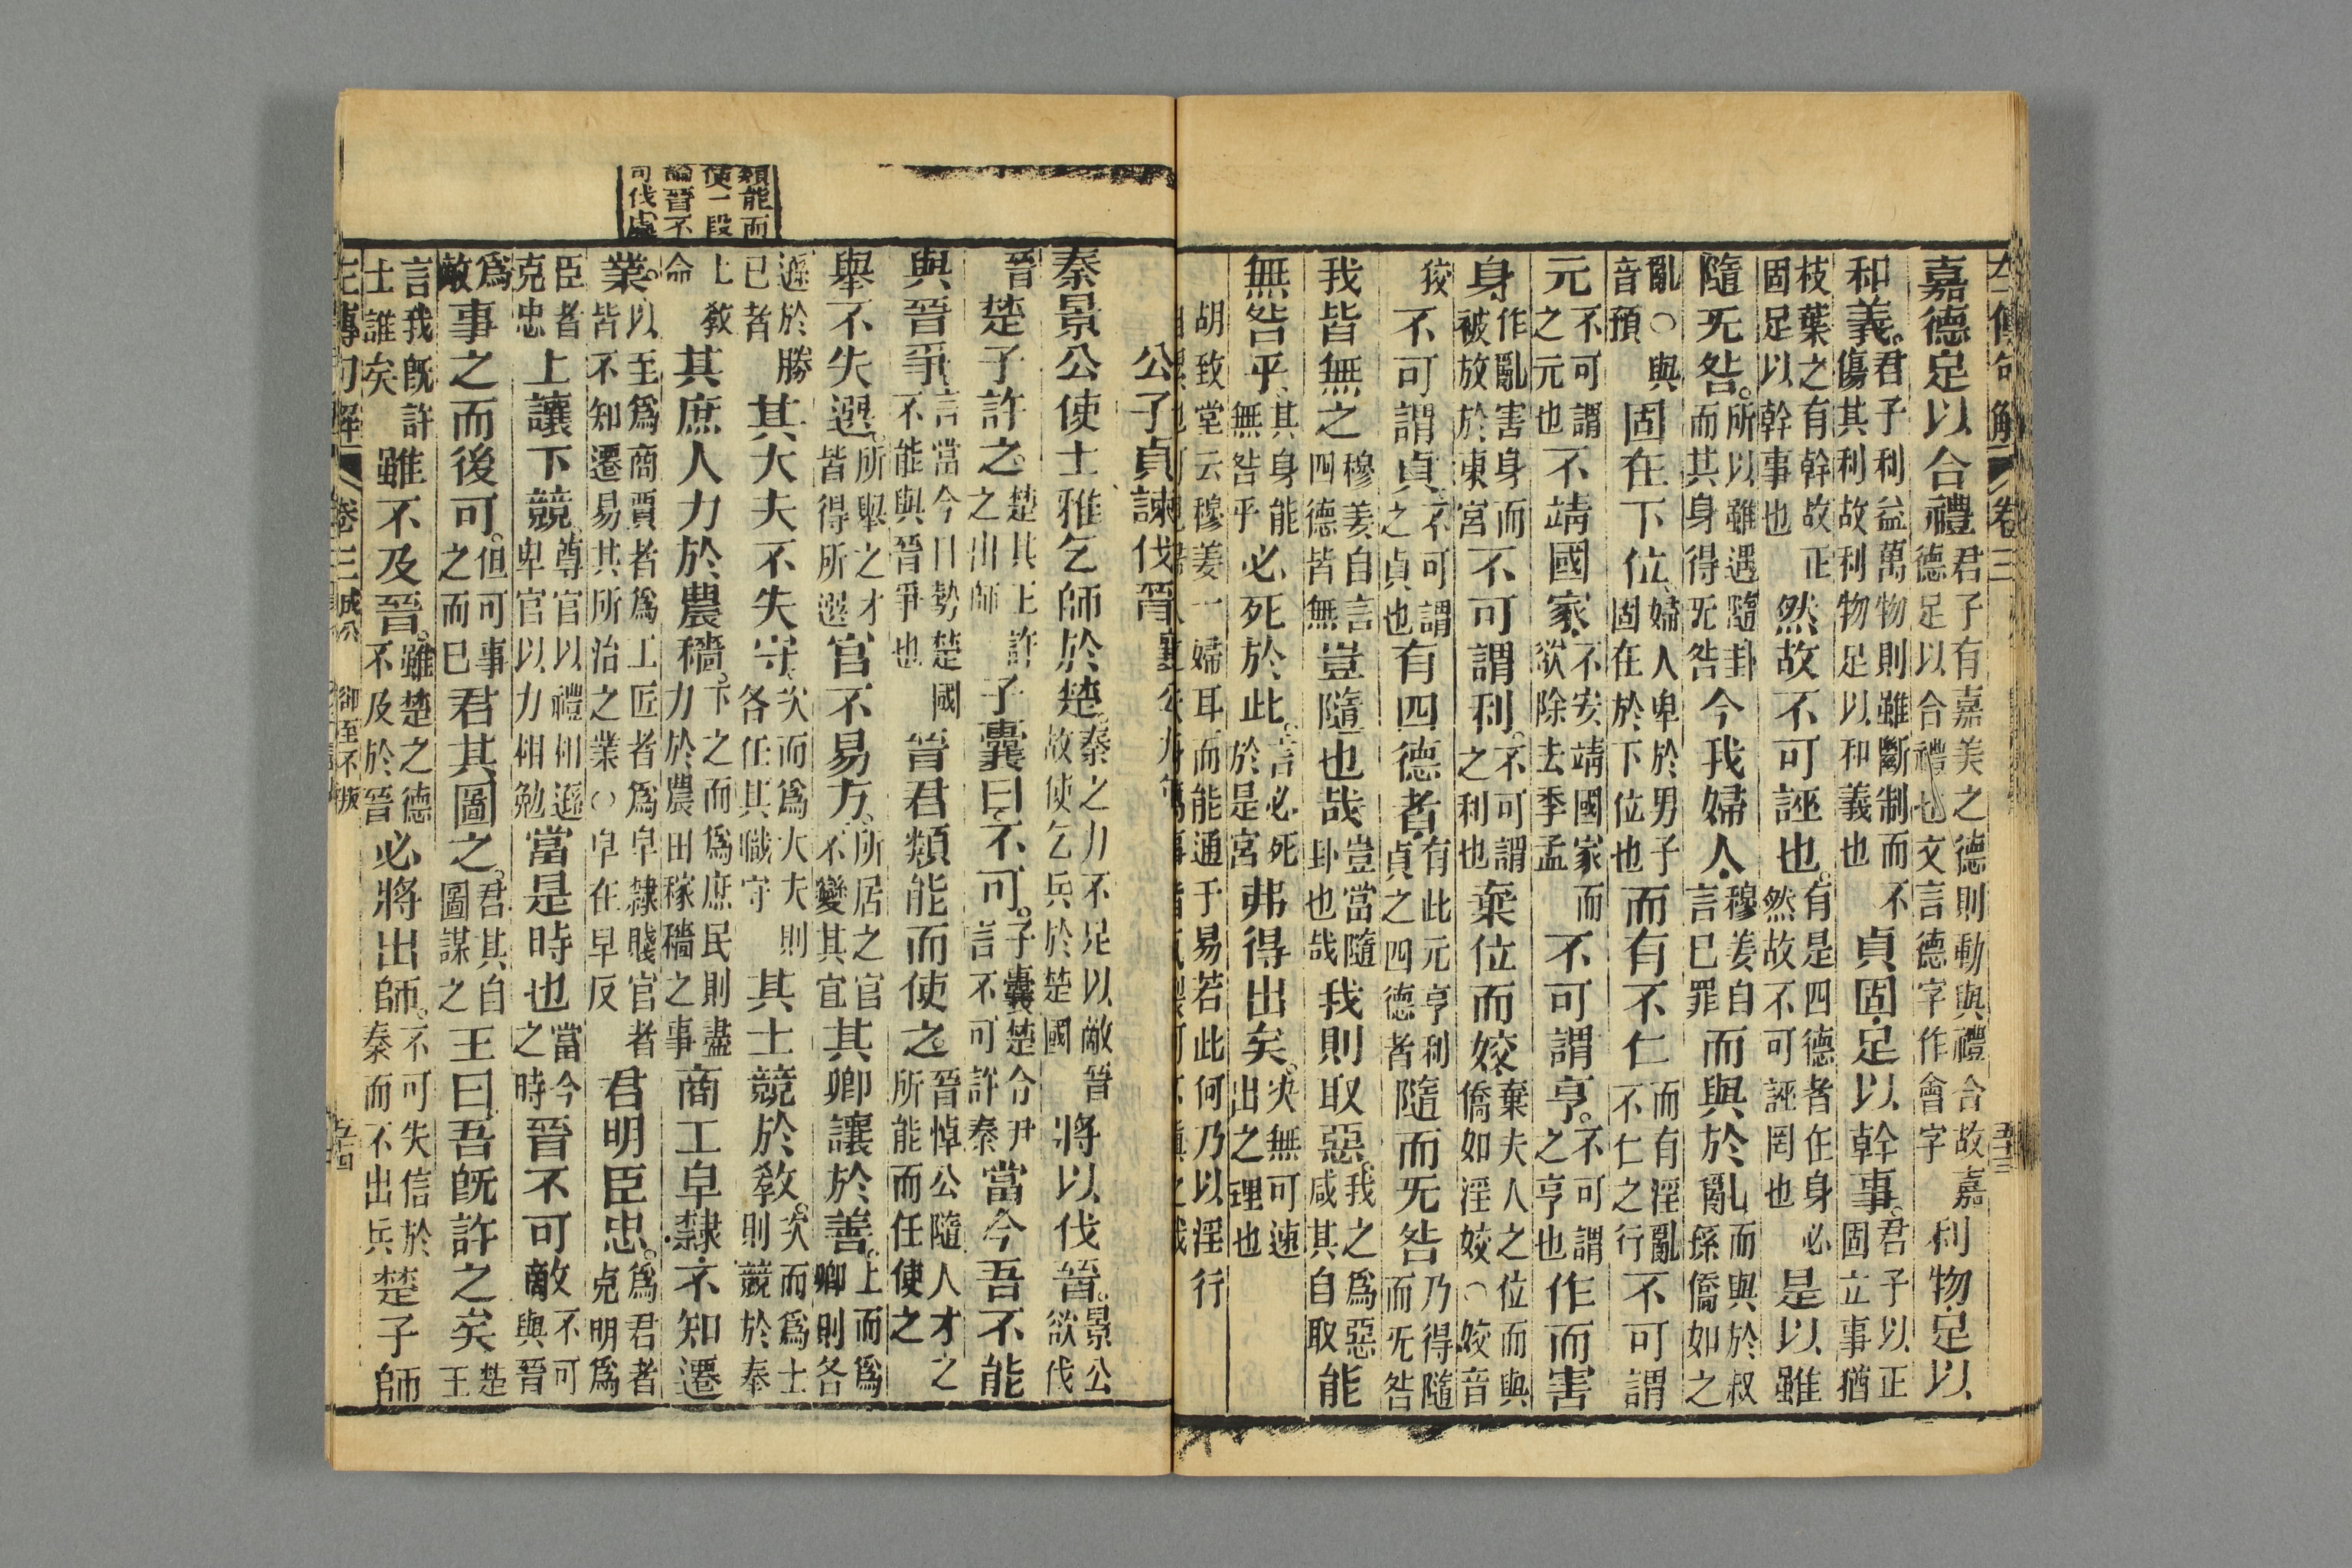 左傳句解 卷三 五十三
嘉德足以合禮君子有嘉美之德則動與禮合故嘉德足以合禮也文言德字作會字利物足以
和義君子利益萬物則雖斷制而不傷其利故利物足以和義也貞固足以幹事君子以正固立事猶
枝葉之有幹故正固足以幹事也然故不可誣也有是四德者在身必然故不可誣罔也是以雖
隨无咎所以雖遇隨卦而其身得无咎今我婦人穆姜自言已罪而與於亂而與於叔孫僑如之
亂○與音預固在下位婦人卑於男子固在於下位也而有不仁而有淫亂不仁之行不可謂
元不可謂之元也不靖國家不安靖國家而欲除去季孟不可謂亨不可謂之亨也作而害
身作亂害身而被放於東宮不可謂利不可謂之利也棄位而姣棄夫人之位而與僑如淫姣○姣音
狡不可謂貞不可謂之貞也有四德者有此元亨利貞之四德者隨而无咎乃得隨而无咎
我皆無之穆姜自言四德皆無豈隨也哉豈當隨卦也哉我則取惡我之為惡咸其自取能
無咎乎其身能無咎乎必死於此言必死於是宮弗得出矣決無可速出之理也
胡致堂云穆姜一婦耳而能通于易若此何乃以淫行
公子貞諫伐晉
秦景公使士雅乞師於楚秦之力不足以敵晉故使乞兵於楚國將以伐晉景公欲伐
晉楚子許之楚其王許之出師子囊曰不可子囊楚令尹言不可許秦當今吾不能
與晉爭言當今日勢楚國不能與晉爭也晉君類能而使之晉悼公隨人才之所能而任使之
舉不失選所舉之才皆得所選官不易方所居之官不變其宜其卿讓於善上而為卿則各
遜於勝已者其大夫不失守次而為大夫則各任其職守其士競於教次而為士則競於奉
上教命其庶人力於農穡下之而為庶民則盡力於農田稼穡之事商工皁隸不知遷
業以至為商賈者為工匠者為皁隸賤官者皆不知遷易其所治之業○皁在早反君明臣忠為君者克明為
臣者克忠上讓下競尊官以禮相遜卑官以力相勉當是時也當今之時晉不可敵不可與晉
為敵事之而後可但可事之而已君其圖之君其自圖謀之王曰吾既許之矣楚王
言我既許士誰矣雖不及晉雖楚之德不及於晉必將出師不可失信於秦而不出兵楚子師
類能而
使一段
論晉不
可伐處